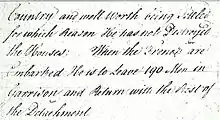 Country and well Worth being Settled
for which Reason He has not Destroyed
the Houses. When the French are
Embarked He is to Leave 190 Men in
Garrison and Return with the Rest of
the Detachment